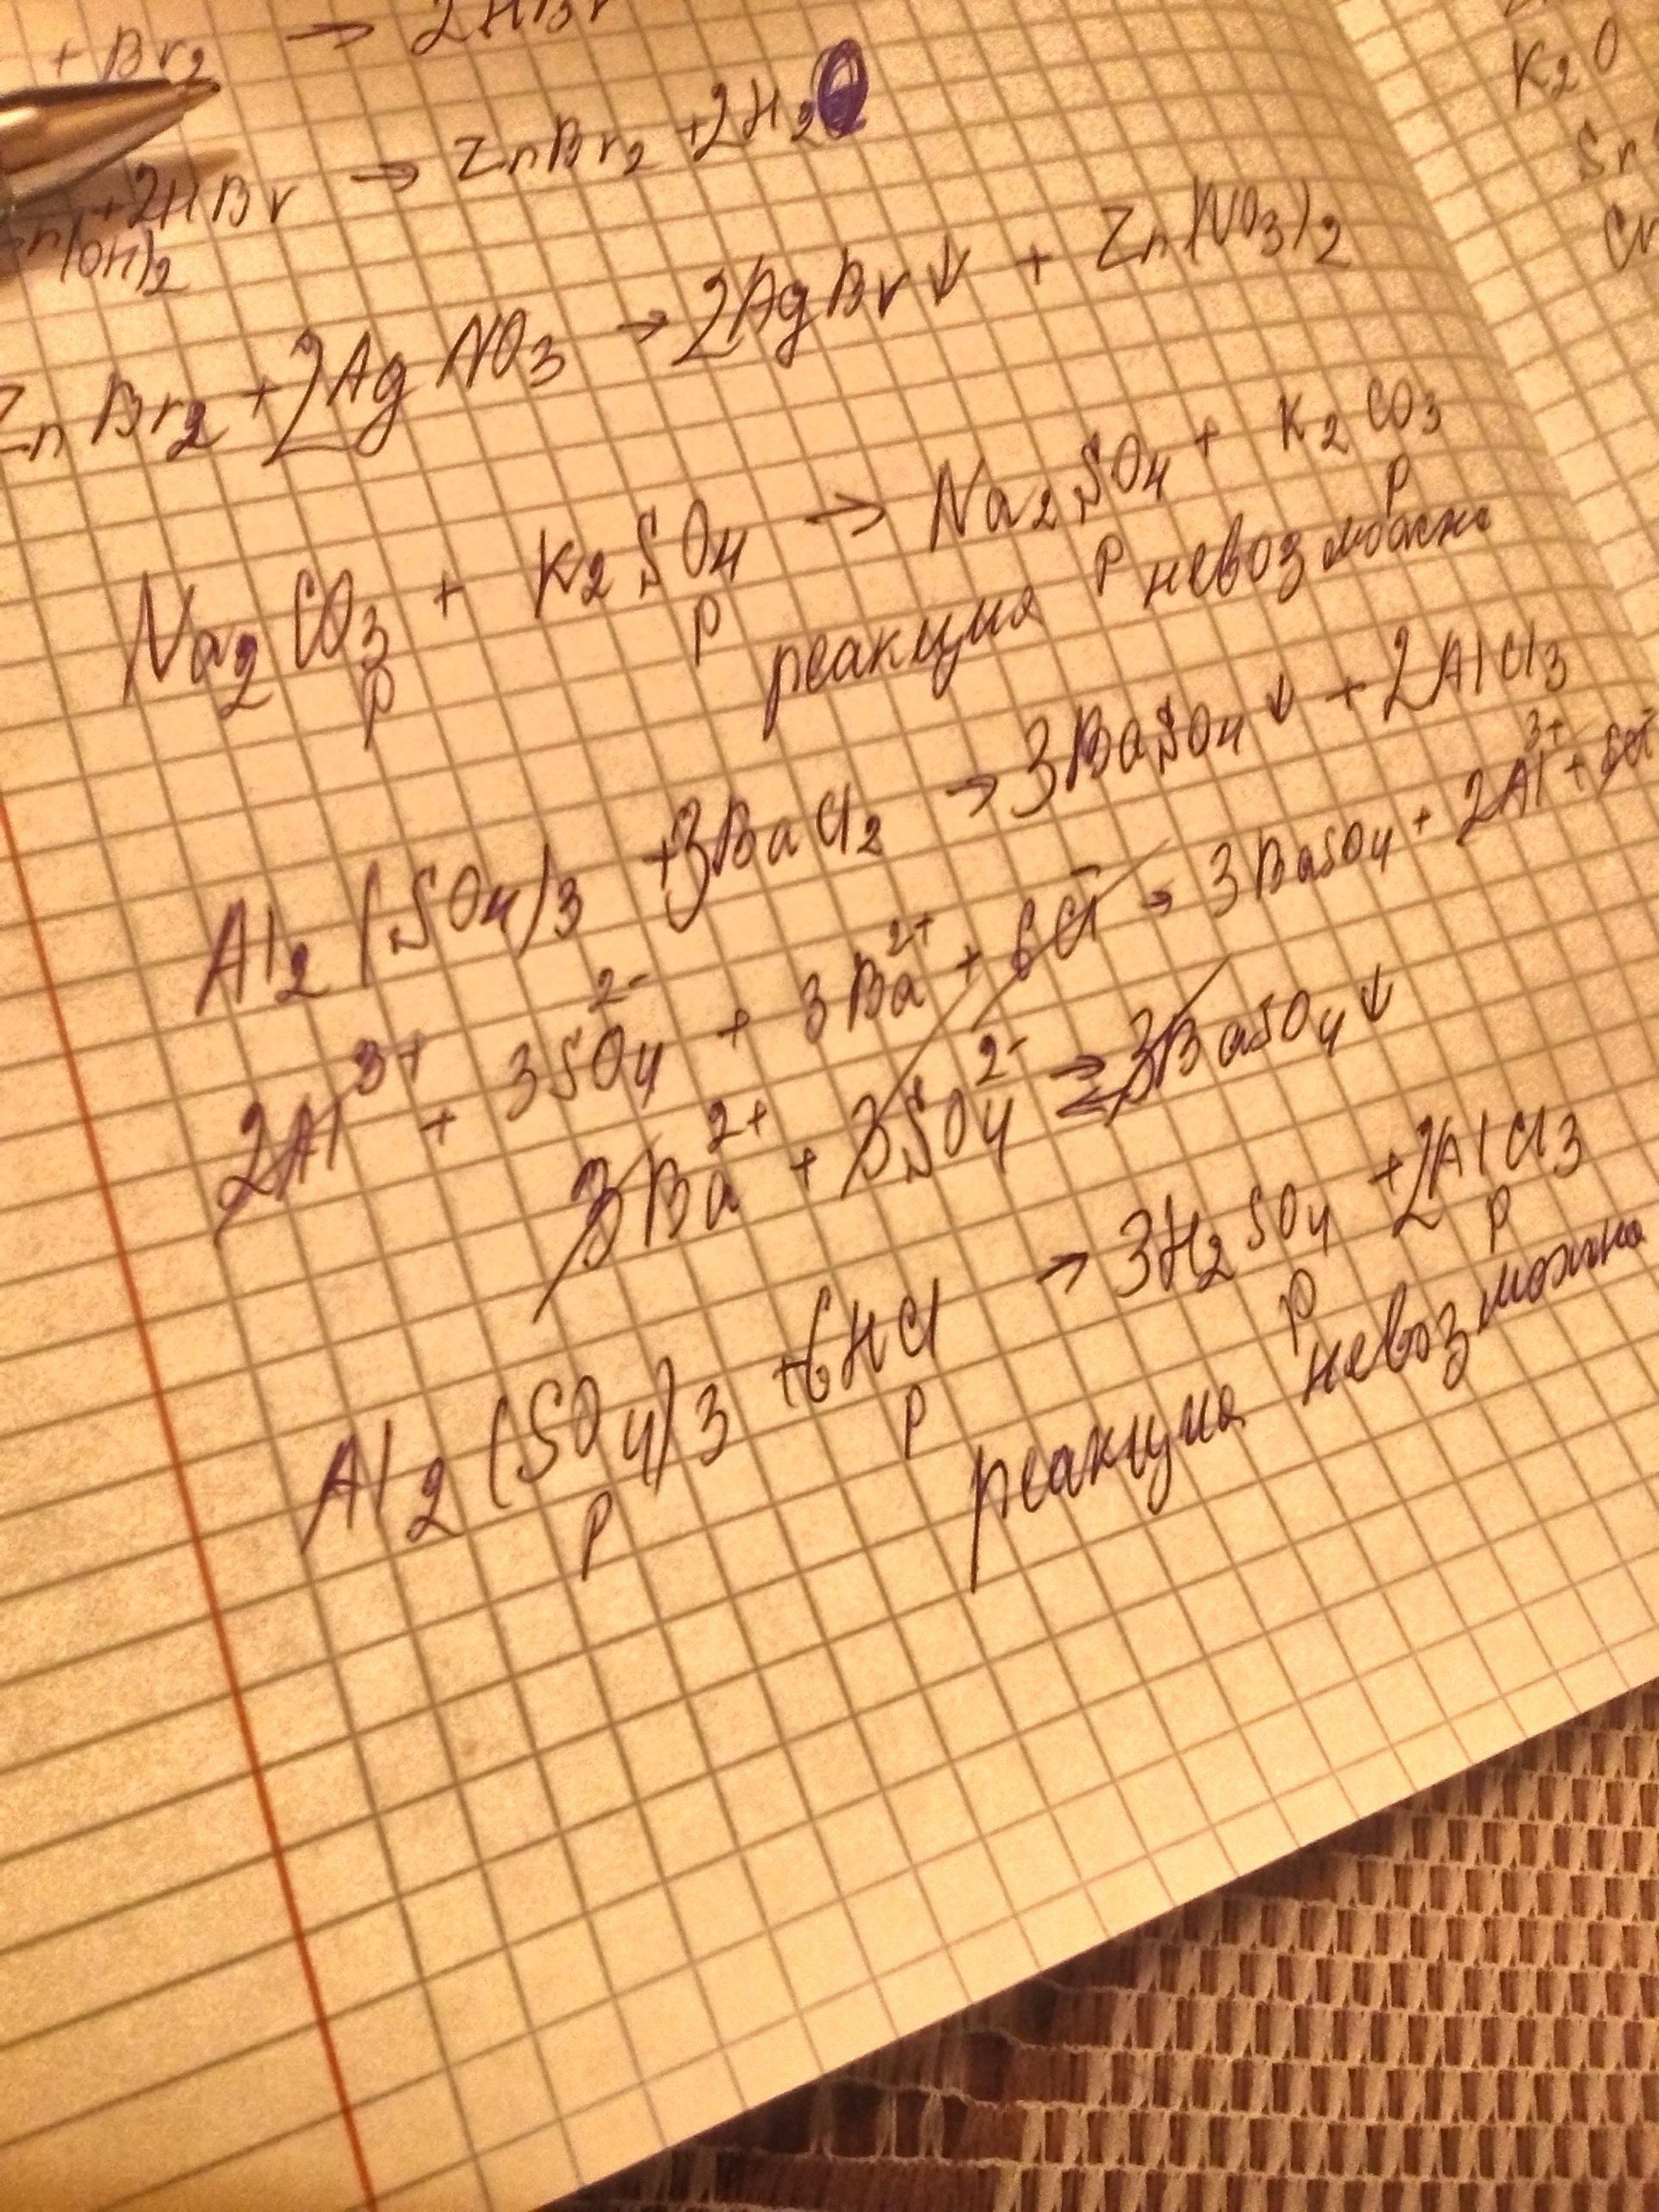 + Br₂ → 2HBr
+2HBr → ZnBr₂ + 2H₂O
(OH)₂
ZnBr₂ + 2AgNO₃ → 2AgBr↓ + Zn(NO₃)₂
Na₂CO₃ + K₂SO₄ → Na₂SO₄ + K₂CO₃
р р р р
реакция невозможн
Al₂(SO₄)₃ + 3BaCl₂ → 3BaSO₄↓ + 2AlCl₃
2Al³⁺ + 3SO₄²⁻ + 3Ba²⁺ + 6Cl⁻ → 3BaSO₄ + 2Al³⁺ + 6Cl⁻
3Ba²⁺ + 3SO₄²⁻ → 3BaSO₄↓
Al₂(SO₄)₃ + 6HCl → 3H₂SO₄ + 2AlCl₃
р р р р
реакция невозможна
K₂O